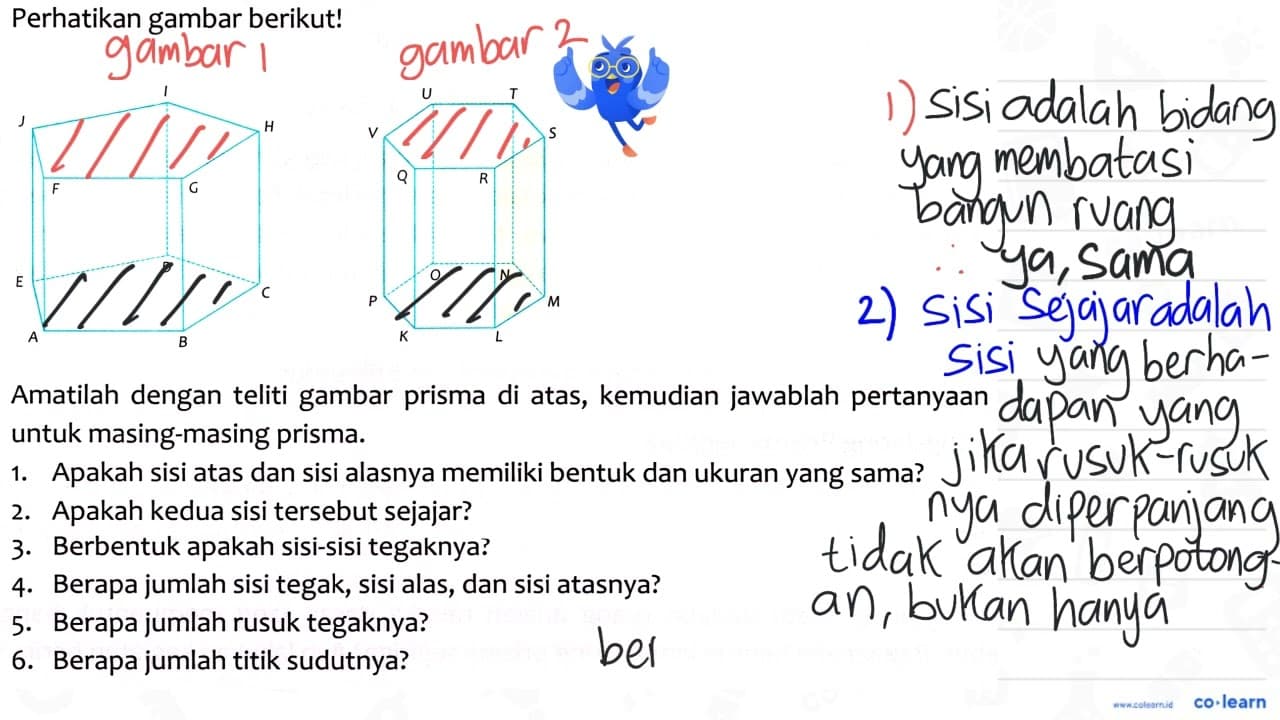 Perhatikan gambar berikut!
gambar 1
gambar 2
I
J
H
F
G
E
D
C
A
B
U
T
V
S
Q
R
O
N
P
M
K
L
Amatilah dengan teliti gambar prisma di atas, kemudian jawablah pertanyaan
untuk masing-masing prisma.
1. Apakah sisi atas dan sisi alasnya memiliki bentuk dan ukuran yang sama?
2. Apakah kedua sisi tersebut sejajar?
3. Berbentuk apakah sisi-sisi tegaknya?
4. Berapa jumlah sisi tegak, sisi alas, dan sisi atasnya?
5. Berapa jumlah rusuk tegaknya?
6. Berapa jumlah titik sudutnya?
1) sisi adalah bidang
yang membatasi
bangun ruang
∴ ya, sama
2) sisi sejajar adalah
sisi yang berha-
dapan yang
jika rusuk-rusuk
nya diperpanjang
tidak akan berpotong-
an, bukan hanya
ber
www.colearn.id
co·learn